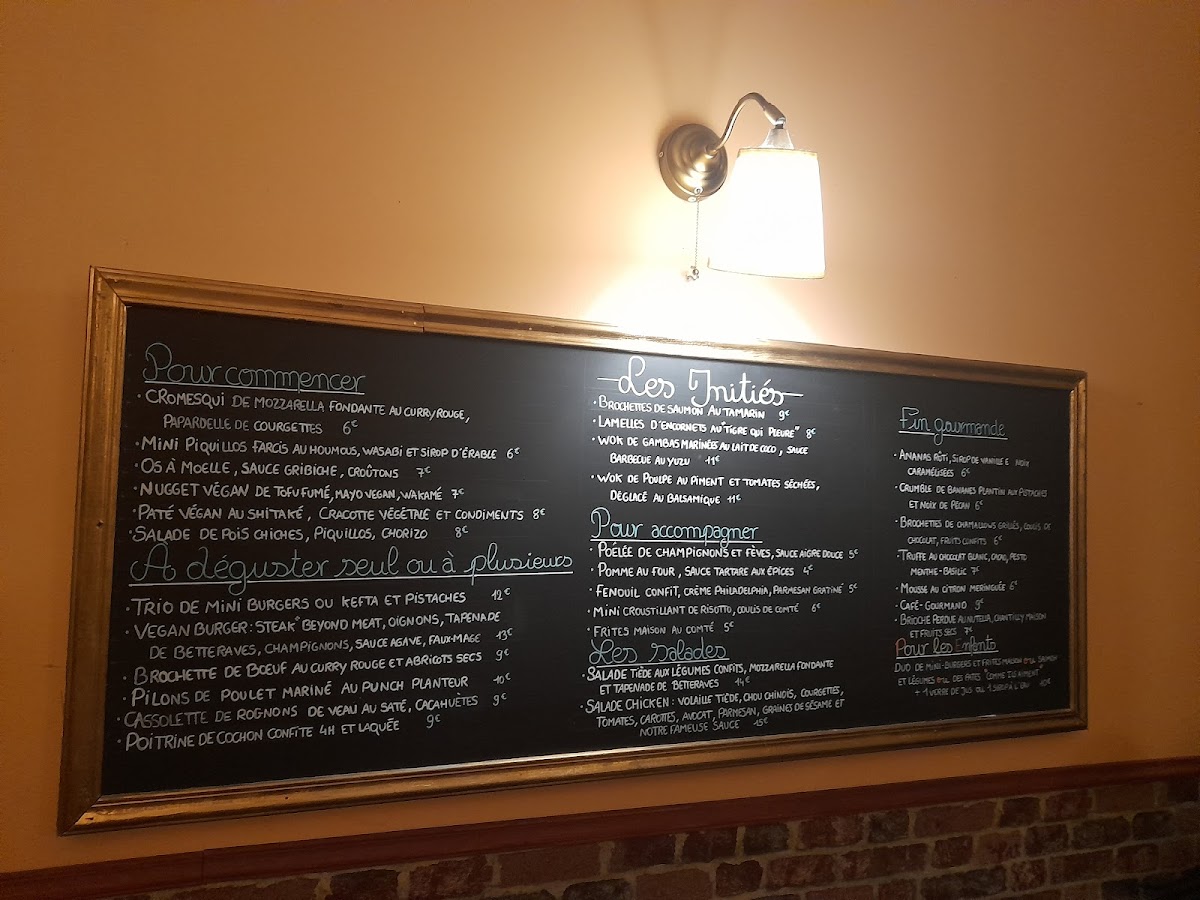 Pour commencer
· CROMESQUI DE MOZZARELLA FONDANTE AU CURRY ROUGE,
PAPARDELLE DE COURGETTES 6€
· MINI PIQUILLOS FARCIS AU HOUMOUS, WASABI ET SIROP D'ÉRABLE 6€
· OS À MOELLE, SAUCE GRIBICHE, CROÛTONS 7€
· NUGGET VÉGAN DE TOFU FUMÉ, MAYO VEGAN, WAKAMÉ 7€
· PATÉ VÉGAN AU SHITAKÉ, CRACOTTE VÉGÉTALE ET CONDIMENTS 8€
· SALADE DE POIS CHICHES, PIQUILLOS, CHORIZO 8€
À déguster seul ou à plusieurs
· TRIO DE MINI BURGERS OU KEFTA ET PISTACHES 12€
· VEGAN BURGER: STEAK "BEYOND MEAT, OIGNONS, TAPENADE
DE BETTERAVES, CHAMPIGNONS, SAUCE AGAVE, FAUX-MAGE 13€
· BROCHETTE DE BŒUF AU CURRY ROUGE ET ABRICOTS SECS 9€
· PILONS DE POULET MARINÉ AU PUNCH PLANTEUR 10€
· CASSOLETTE DE ROGNONS DE VEAU AU SATÉ, CACAHUÈTES 9€
· POITRINE DE COCHON CONFITE 4H ET LAQUÉE 9€
Les Initiés
· BROCHETTES DE SAUMON AU TAMARIN 9€
· LAMELLES D'ENCORNETS AU "TIGRE QUI PLEURE" 8€
· WOK DE GAMBAS MARINÉES AU LAIT DE COCO, SAUCE
BARBECUE AU YUZU 11€
· WOK DE POULPE AU PIMENT ET TOMATES SÉCHÉES,
DÉGLACÉ AU BALSAMIQUE 11€
Pour accompagner
· POÊLÉE DE CHAMPIGNONS ET FÈVES, SAUCE AIGRE DOUCE 5€
· POMME AU FOUR, SAUCE TARTARE AUX ÉPICES 4€
· FENOUIL CONFIT, CRÈME PHILADELPHIA, PARMESAN GRATINÉ 5€
· MINI CROUSTILLANT DE RISOTTO, COULIS DE COMTÉ 6€
· FRITES MAISON AU COMTÉ 5€
Les salades
· SALADE TIÈDE AUX LÉGUMES CONFITS, MOZZARELLA FONDANTE
ET TAPENADE DE BETTERAVES 14€
· SALADE CHICKEN: VOLAILLE TIÈDE, CHOU CHINOIS, COURGETTES,
TOMATES, CAROTTES, AVOCAT, PARMESAN, GRAINES DE SÉSAME ET
NOTRE FAMEUSE SAUCE 15€
Fin gourmande
· ANANAS RÔTI, SIROP DE VANILLE E NOIX
CARAMÉLISÉES 6€
· CRUMBLE DE BANANES PLANTIN AUX PISTACHES
ET NOIX DE PÉCAN 6€
· BROCHETTES DE CHAMALLOWS GRILLÉS, COULIS DE
CHOCOLAT, FRUITS CONFITS 6€
· TRUFFE AU CHOCOLAT BLANC, CACAO, PESTO
MENTHE-BASILIC 7€
· MOUSSE AU CITRON MERINGUÉE 6€
· CAFÉ-GOURMAND 9€
· BRIOCHE PERDUE AU NUTELLA, CHANTILLY MAISON
ET FRUITS SECS 7€
Pour les Enfants
DUO DE MINI-BURGERS ET FRITES MAISON ou SAUMON
ET LÉGUMES ou DES PATES "COMME ILS AIMENT"
+ 1 VERRE DE JUS OU 1 SIROP À L'EAU 10€